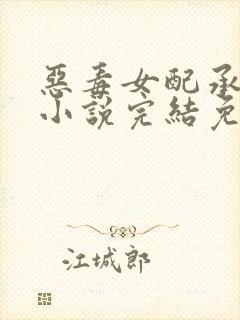 惡毒女配承
小說完結免
江城郎